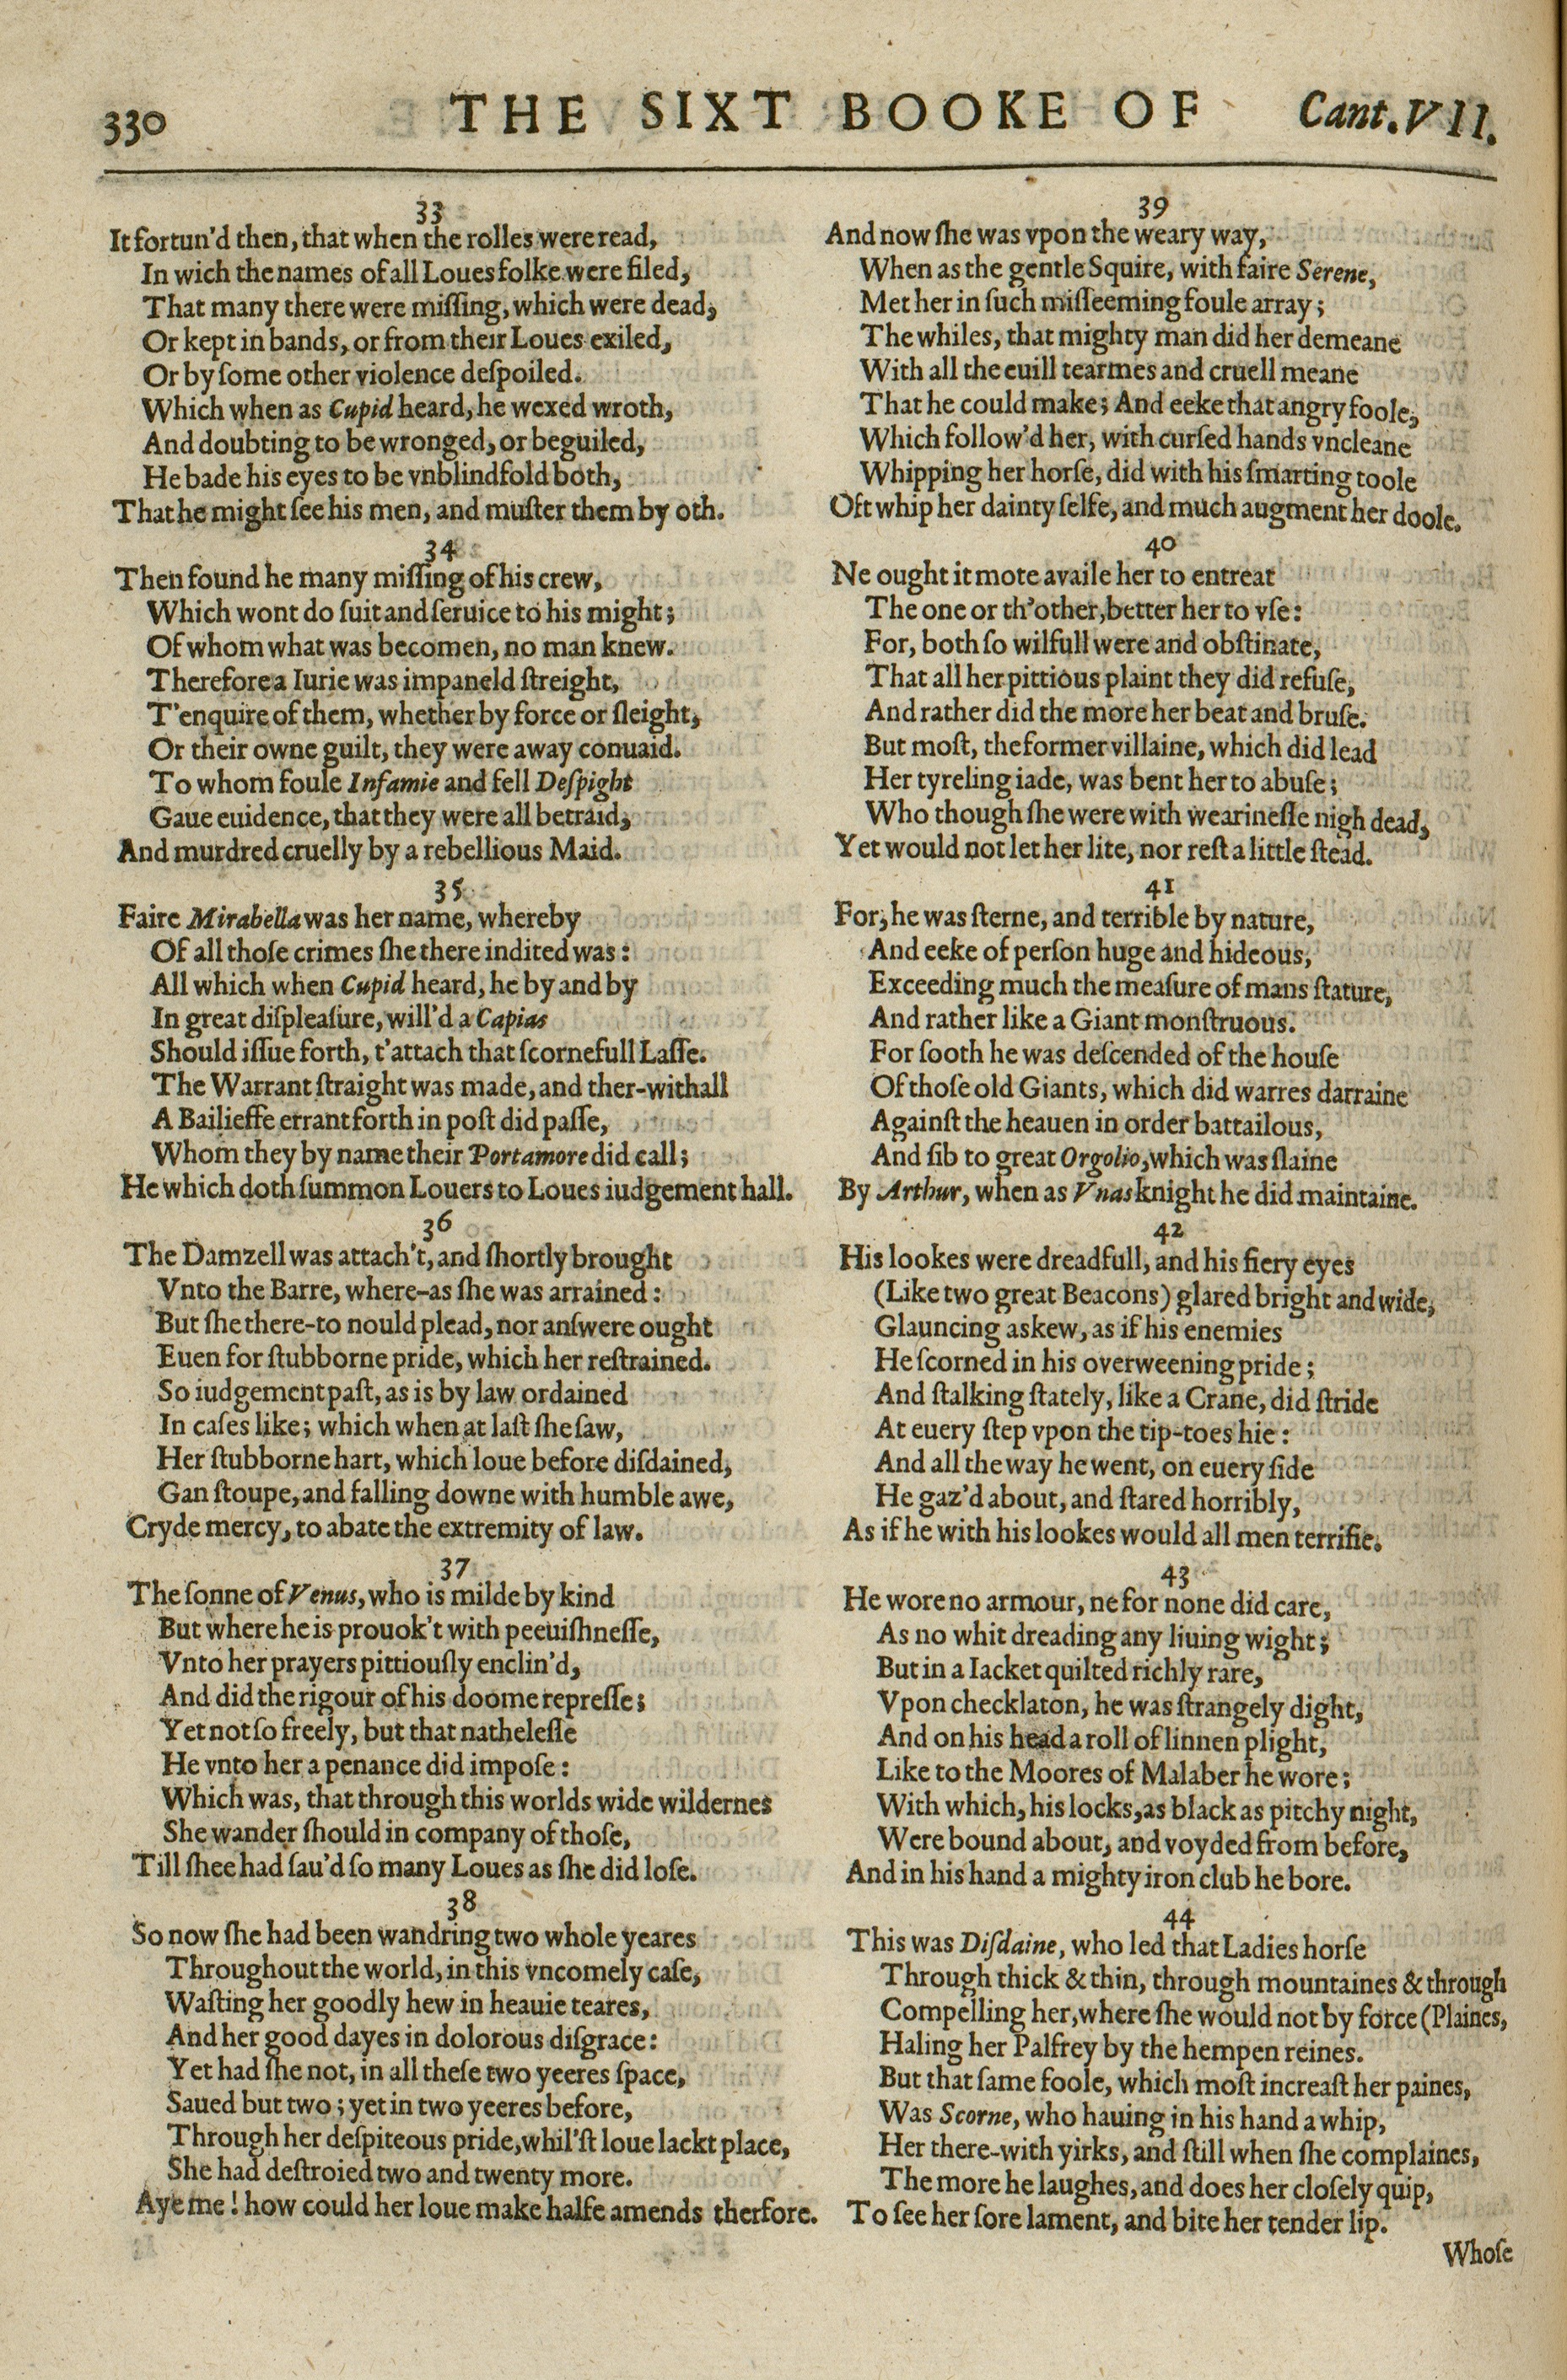 330 THE SIXT BOOKE OF Cant. VII.
33
It fortun'd then, that when the rolles were read,
In wich the names of all Loues folke were filed,
That many there were miſſing, which were dead,
Or kept in bands, or from their Loues exiled,
Or by ſome other violence deſpoiled.
Which when as Cupid heard, he wexed wroth,
And doubting to be wronged, or beguiled,
He bade his eyes to be vnblindfold both,
That he might ſee his men, and muſter them by oth.
34
Then found he many miſſing of his crew,
Which wont do ſuit and ſeruice to his might;
Of whom what was becomen, no man knew.
Therefore a Iurie was impaneld ſtreight,
T'enquire of them, whether by force or ſleight,
Or their owne guilt, they were away conuaid.
To whom foule Infamie and fell Deſpight
Gaue euidence, that they were all betraid,
And murdred cruelly by a rebellious Maid.
35
Faire Mirabella was her name, whereby
Of all thoſe crimes ſhe there indited was:
All which when Cupid heard, he by and by
In great diſpleaſure, will'd a Capias
Should iſſue forth, t'attach that ſcornefull Laſſe.
The Warrant ſtraight was made, and ther-withall
A Bailieffe errant forth in poſt did paſſe,
Whom they by name their Portamore did call;
He which doth ſummon Louers to Loues iudgement hall.
36
The Damzell was attach't, and ſhortly brought
Vnto the Barre, where-as ſhe was arrained:
But ſhe there-to nould plead, nor anſwere ought
Euen for ſtubborne pride, which her reſtrained.
So iudgement paſt, as is by law ordained
In caſes like; which when at laſt ſhe ſaw,
Her ſtubborne hart, which loue before diſdained,
Gan ſtoupe, and falling downe with humble awe,
Cryde mercy, to abate the extremity of law.
37
The ſonne of Venus, who is milde by kind
But where he is prouok't with peeuiſhneſſe,
Vnto her prayers pittiouſly enclin'd,
And did the rigour of his doome repreſſe;
Yet not ſo freely, but that natheleſſe
He vnto her a penance did impoſe:
Which was, that through this worlds wide wildernes
She wander ſhould in company of thoſe,
Till ſhee had ſau'd ſo many Loues as ſhe did loſe.
38
So now ſhe had been wandring two whole yeares
Throughout the world, in this vncomely caſe,
Waſting her goodly hew in heauie teares,
And her good dayes in dolorous diſgrace:
Yet had ſhe not, in all theſe two yeeres ſpace,
Saued but two; yet in two yeeres before,
Through her deſpiteous pride, whil'ſt loue lackt place,
She had deſtroied two and twenty more.
Aye me! how could her loue make halfe amends therfore.
39
And now ſhe was vpon the weary way,
When as the gentle Squire, with faire Serene,
Met her in ſuch miſſeeming foule array;
The whiles, that mighty man did her demeane
With all the euill tearmes and cruell meane
That he could make; And eeke that angry foole,
Which follow'd her, with curſed hands vncleane
Whipping her horſe, did with his ſmarting toole
Oft whip her dainty ſelfe, and much augment her doole.
40
Ne ought it mote auaile her to entreat
The one or th'other, better her to vſe:
For, both ſo wilfull were and obſtinate,
That all her pittious plaint they did refuſe,
And rather did the more her beat and bruſe.
But moſt, the former villaine, which did lead
Her tyreling iade, was bent her to abuſe;
Who though ſhe were with wearineſſe nigh dead,
Yet would not let her lite, nor reſt a little ſtead.
41
For, he was ſterne, and terrible by nature,
And eeke of perſon huge and hideous,
Exceeding much the meaſure of mans ſtature,
And rather like a Giant monſtruous.
For ſooth he was deſcended of the houſe
Of thoſe old Giants, which did warres darraine
Againſt the heauen in order battailous,
And ſib to great Orgolio, which was ſlaine
By Arthur, when as Vnas knight he did maintaine.
42
His lookes were dreadfull, and his fiery eyes
(Like two great Beacons) glared bright and wide,
Glauncing askew, as if his enemies
He ſcorned in his overweening pride;
And ſtalking ſtately, like a Crane, did ſtride
At euery ſtep vpon the tip-toes hie:
And all the way he went, on euery ſide
He gaz'd about, and ſtared horribly,
As if he with his lookes would all men terrifie.
43
He wore no armour, ne for none did care,
As no whit dreading any liuing wight;
But in a Iacket quilted richly rare,
Vpon checklaton, he was ſtrangely dight,
And on his head a roll of linnen plight,
Like to the Moores of Malaber he wore;
With which, his locks, as black as pitchy night,
Were bound about, and voyded from before,
And in his hand a mighty iron club he bore.
44
This was Diſdaine, who led that Ladies horſe
Through thick & thin, through mountaines & through
Compelling her, where ſhe would not by force (Plaines,
Haling her Palfrey by the hempen reines.
But that ſame foole, which moſt increaſt her paines,
Was Scorne, who hauing in his hand a whip,
Her there-with yirks, and ſtill when ſhe complaines,
The more he laughes, and does her cloſely quip,
To ſee her ſore lament, and bite her tender lip.
Whoſe